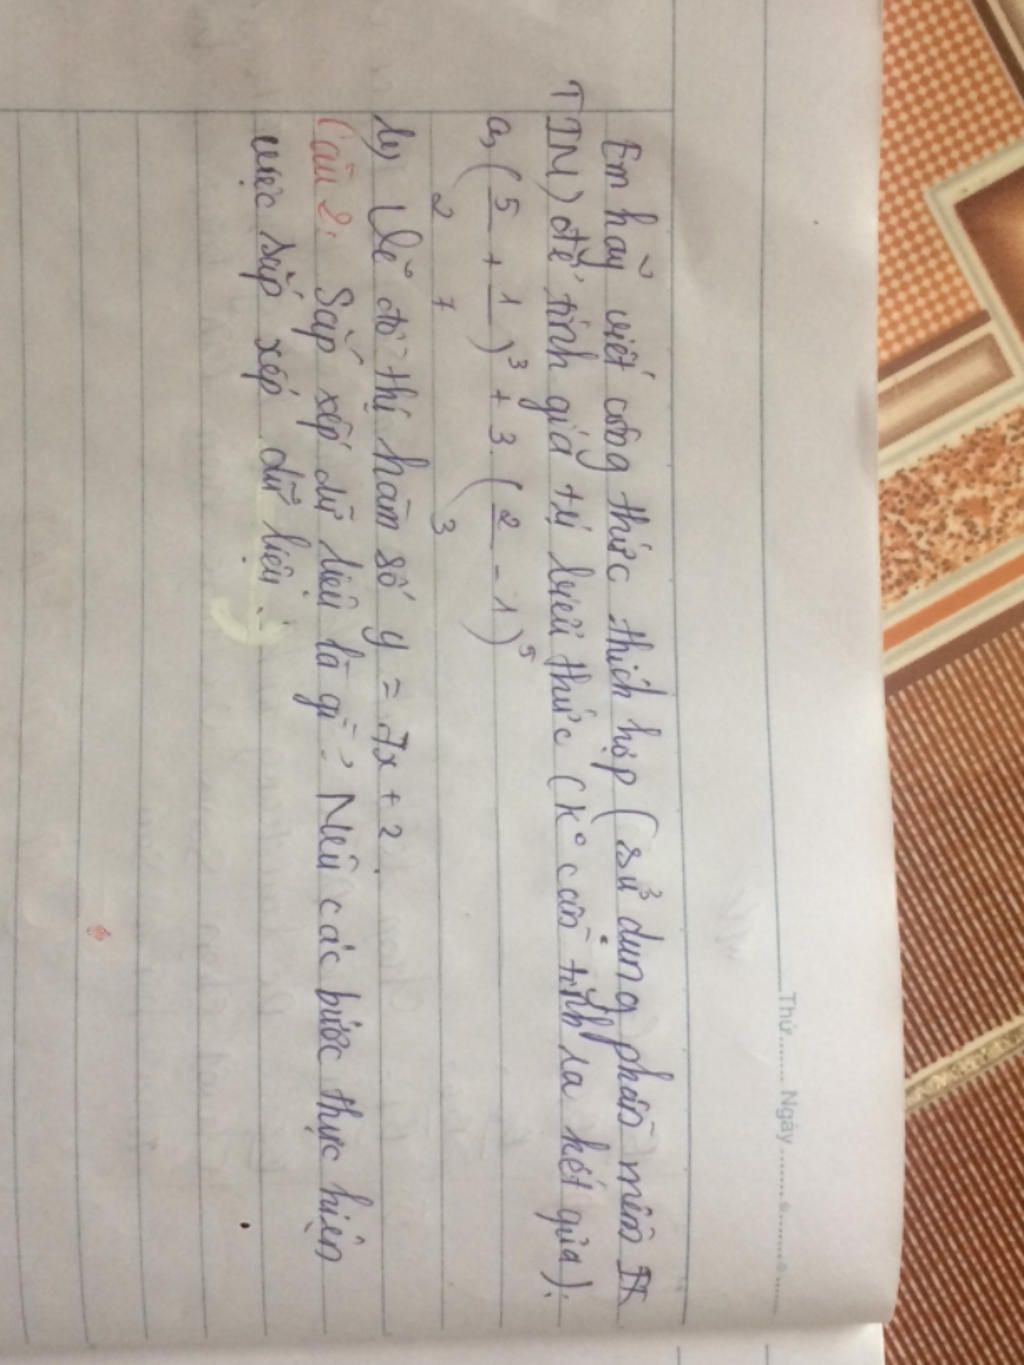 Thứ........ Ngày ........................
Em hãy viết công thức thích hợp (sử dụng phần mềm
TIM) để tính giá trị biểu thức (Kº cần tính ra kết quả):
a, (5/2 + 1/7)³ + 3.(2/3 - 1)⁵
b, Vẽ đồ thị hàm số y = 7x + 2.
Câu 2: Sắp xếp dữ liệu là gì? Nêu các bước thực hiện
việc sắp xếp dữ liệu.